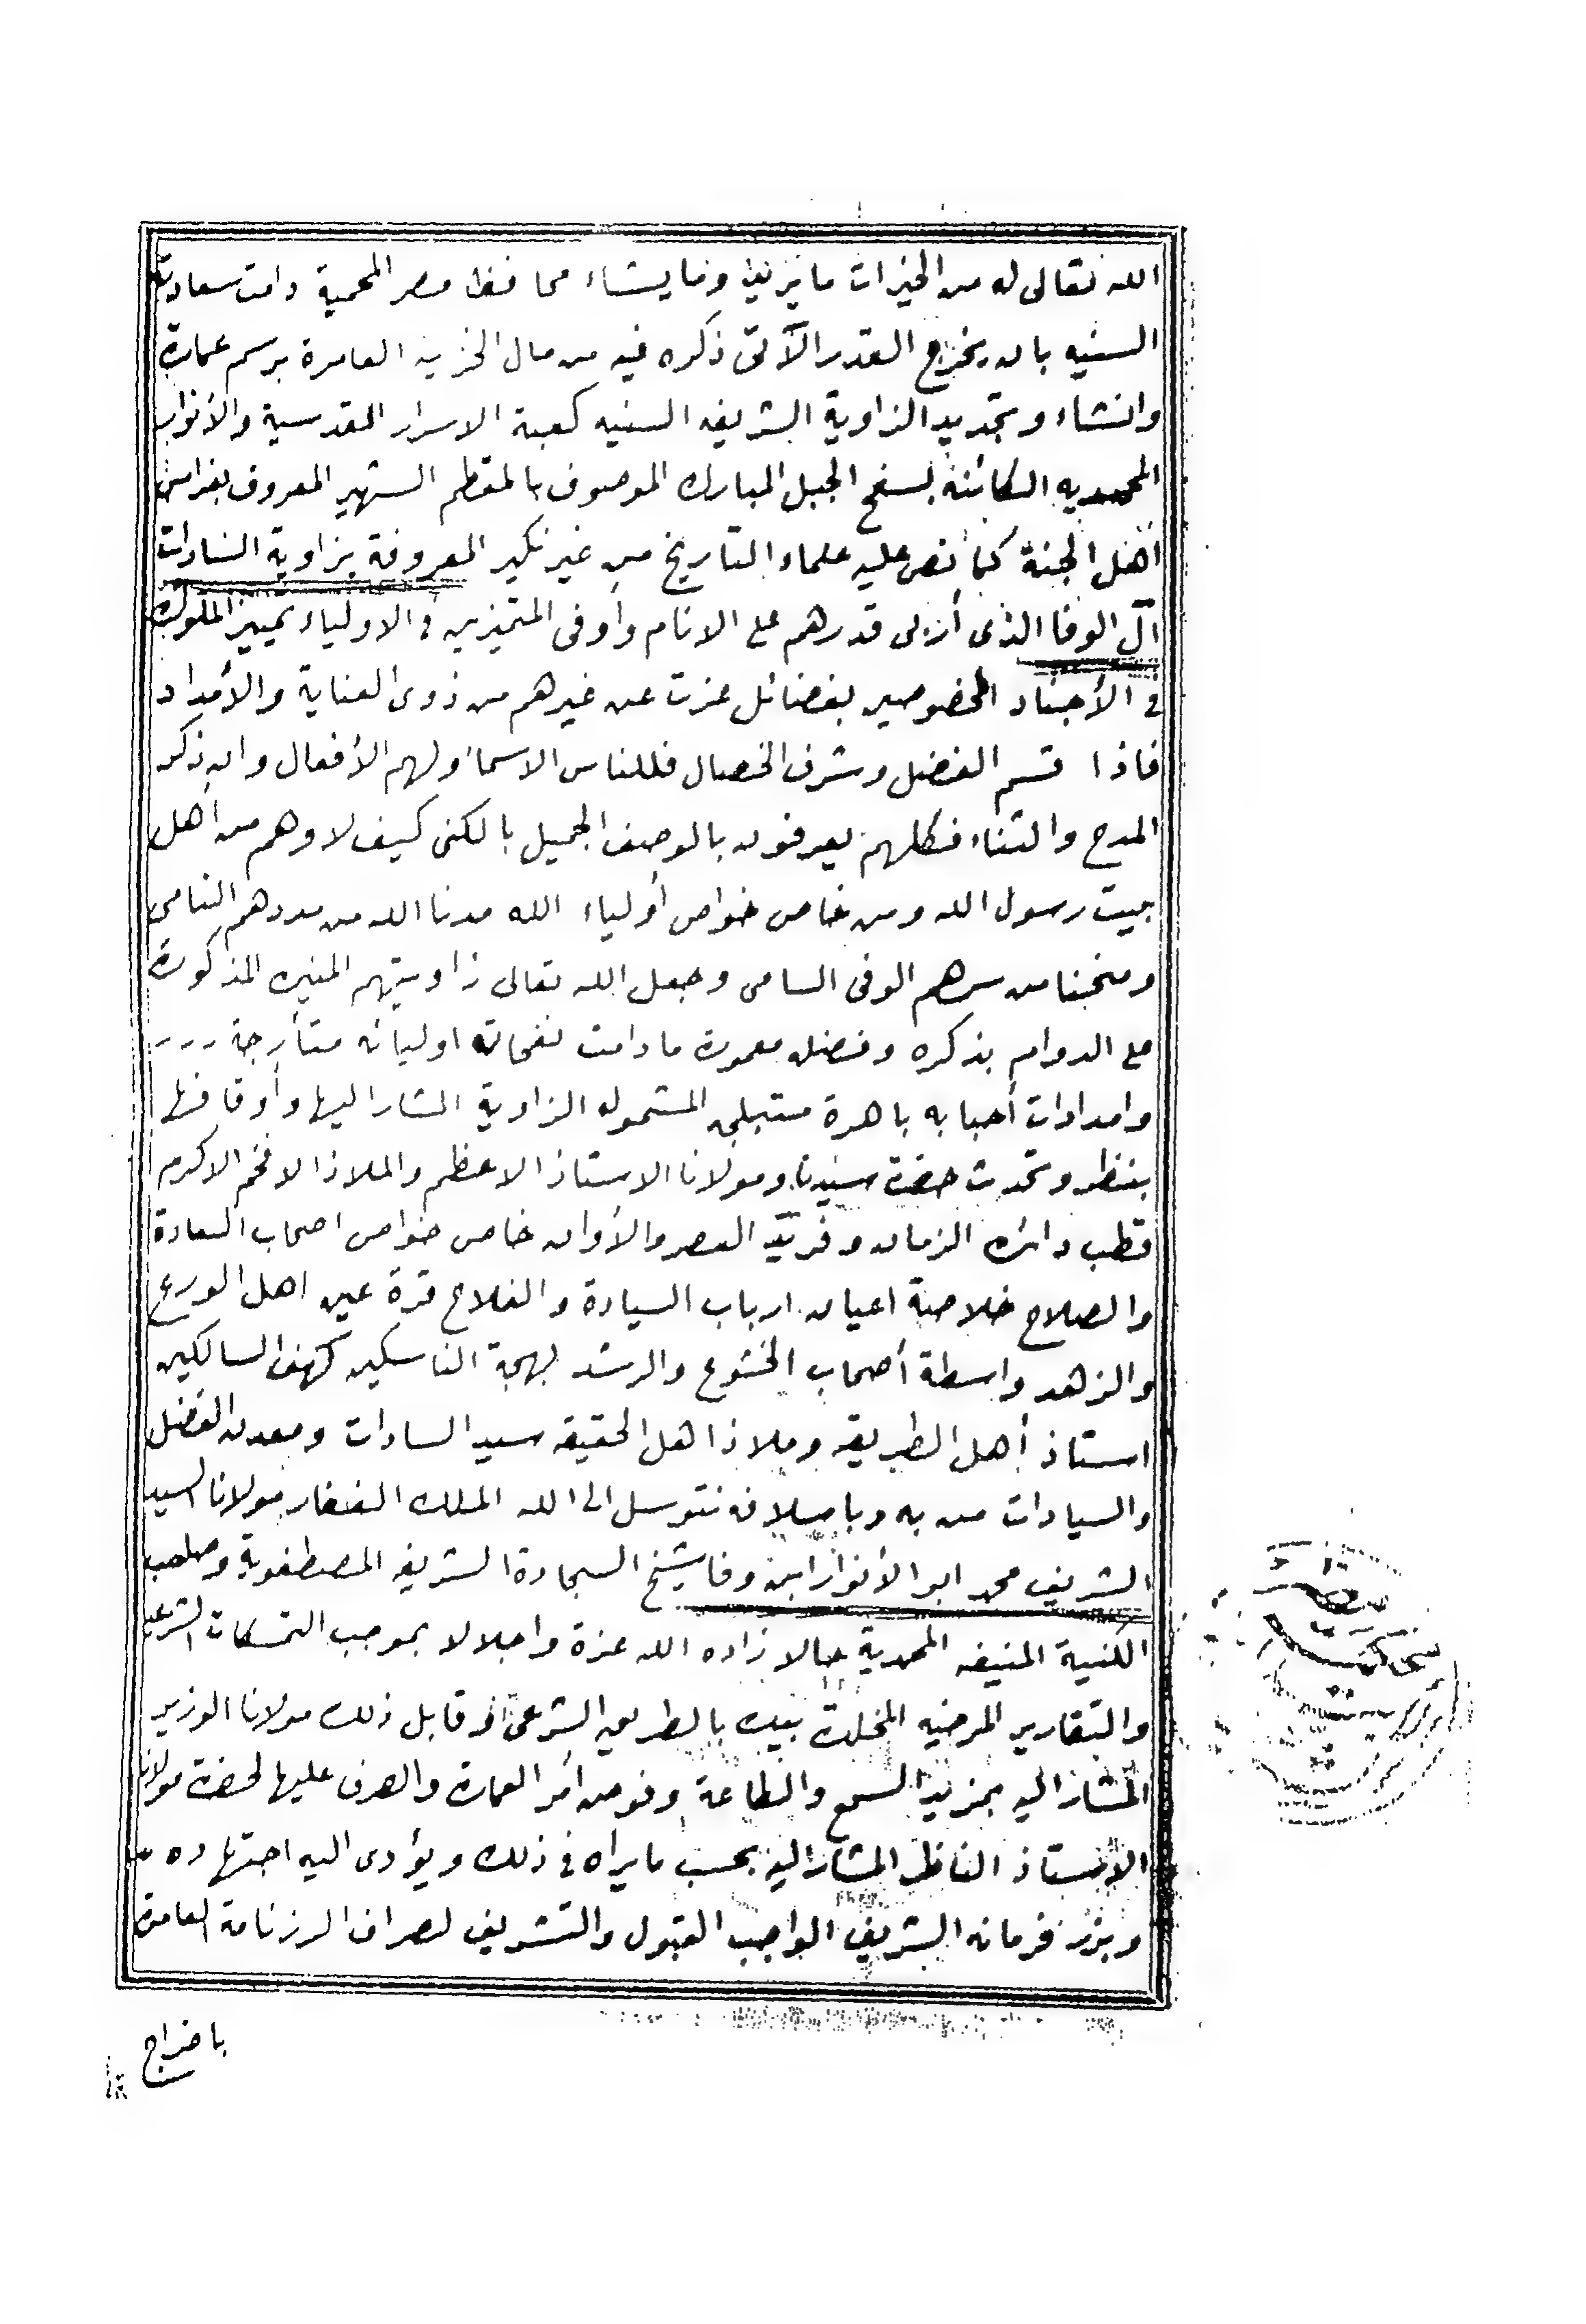 الله تعالى له من الخيرات ما يزيد وما يشاء محافظ مصر المحمية دامت سعادته
السنيه بان يخرج القدر الآتى ذكره فيه من مال الخزينه العامرة برسم عمارة
وانشاء وتجديد الزاوية الشريفه السنيه كعبة الاسرار القدسية والأنوار
المحمديه الكائنة بسفح الجبل المبارك الموصوف بالمقطم الشهير المعروف بغراس
أهل الجنة كما نص عليه علماء التاريخ من غير نكير المعروفة بزاوية السادات
آل الوفا الذى قدرهم على الانام وأوفى المتميزين فى الاولياء تمييز الملوك
فى الأجناد المخصوصين بفضائل عزت عن غيرهم من ذوى العناية والأمداد
فاذا قسم الفضل وشرف الخصال فللناس الاسما ولهم الأفعال وان ذكر
المدح والثناء فكلهم يعرفون بالوصف الجميل بالكنى كيف لا وهم من أهل
بيت رسول الله ومن خاص خواص أولياء الله مدنا الله من مددهم النامى
ومنحنا من سرهم الوفى السامى وجعل الله تعالى زاويتهم المنيره المذكورة
على الدوام بذكره وفضله معمورة ما دامت نفحات اوليائه متأرجة
وامدادات أحبابه باهرة المشموله الزاوية المشار اليها وأوقافها
بنظر وتحدث حضرة سيدنا ومولانا الاستاذ الاعظم والملاذ الافخم الاكرم
قطب دائرة الزمان وفريد العصر والأوان خاص خواص اصحاب السعادة
والصلاح خلاصة اعيان ارباب السيادة والفلاح قرة عين اهل الورع
والزهد واسطة أصحاب الخشوع والرشد بهجة الناسكين كهف السالكين
استاذ أهل الطريقه وملاذ اهل الحقيقه سيد السادات ومعدن الفضل
والسيادات من به وباسلافه نتوسل الى الله الملك الغفار مولانا السيد
الشريف محمد ابو الأنوار ابن وفا شيخ السجادة الشريفه المصطفوية وصاحب
الكنية المنيفه المحمدية حالا زاده الله عزة واجلالا بموجب التمسكات الشرعيه
والتقارير المرضيه المخلدة بيده بالطريق الشرعى قابل ذلك مولانا الوزير
المشار اليه بمزيد السمع والطاعة وفوض أمر العمارة والصرف عليها لحضرة مولانا
الاستاذ الناظر المشار اليه بحسب ما يراه فى ذلك ويؤدى اليه اجتهاده
وبرز فرمانه الشريف الواجب القبول والتشريف لصراف الرزنامة العامرة
باخراج